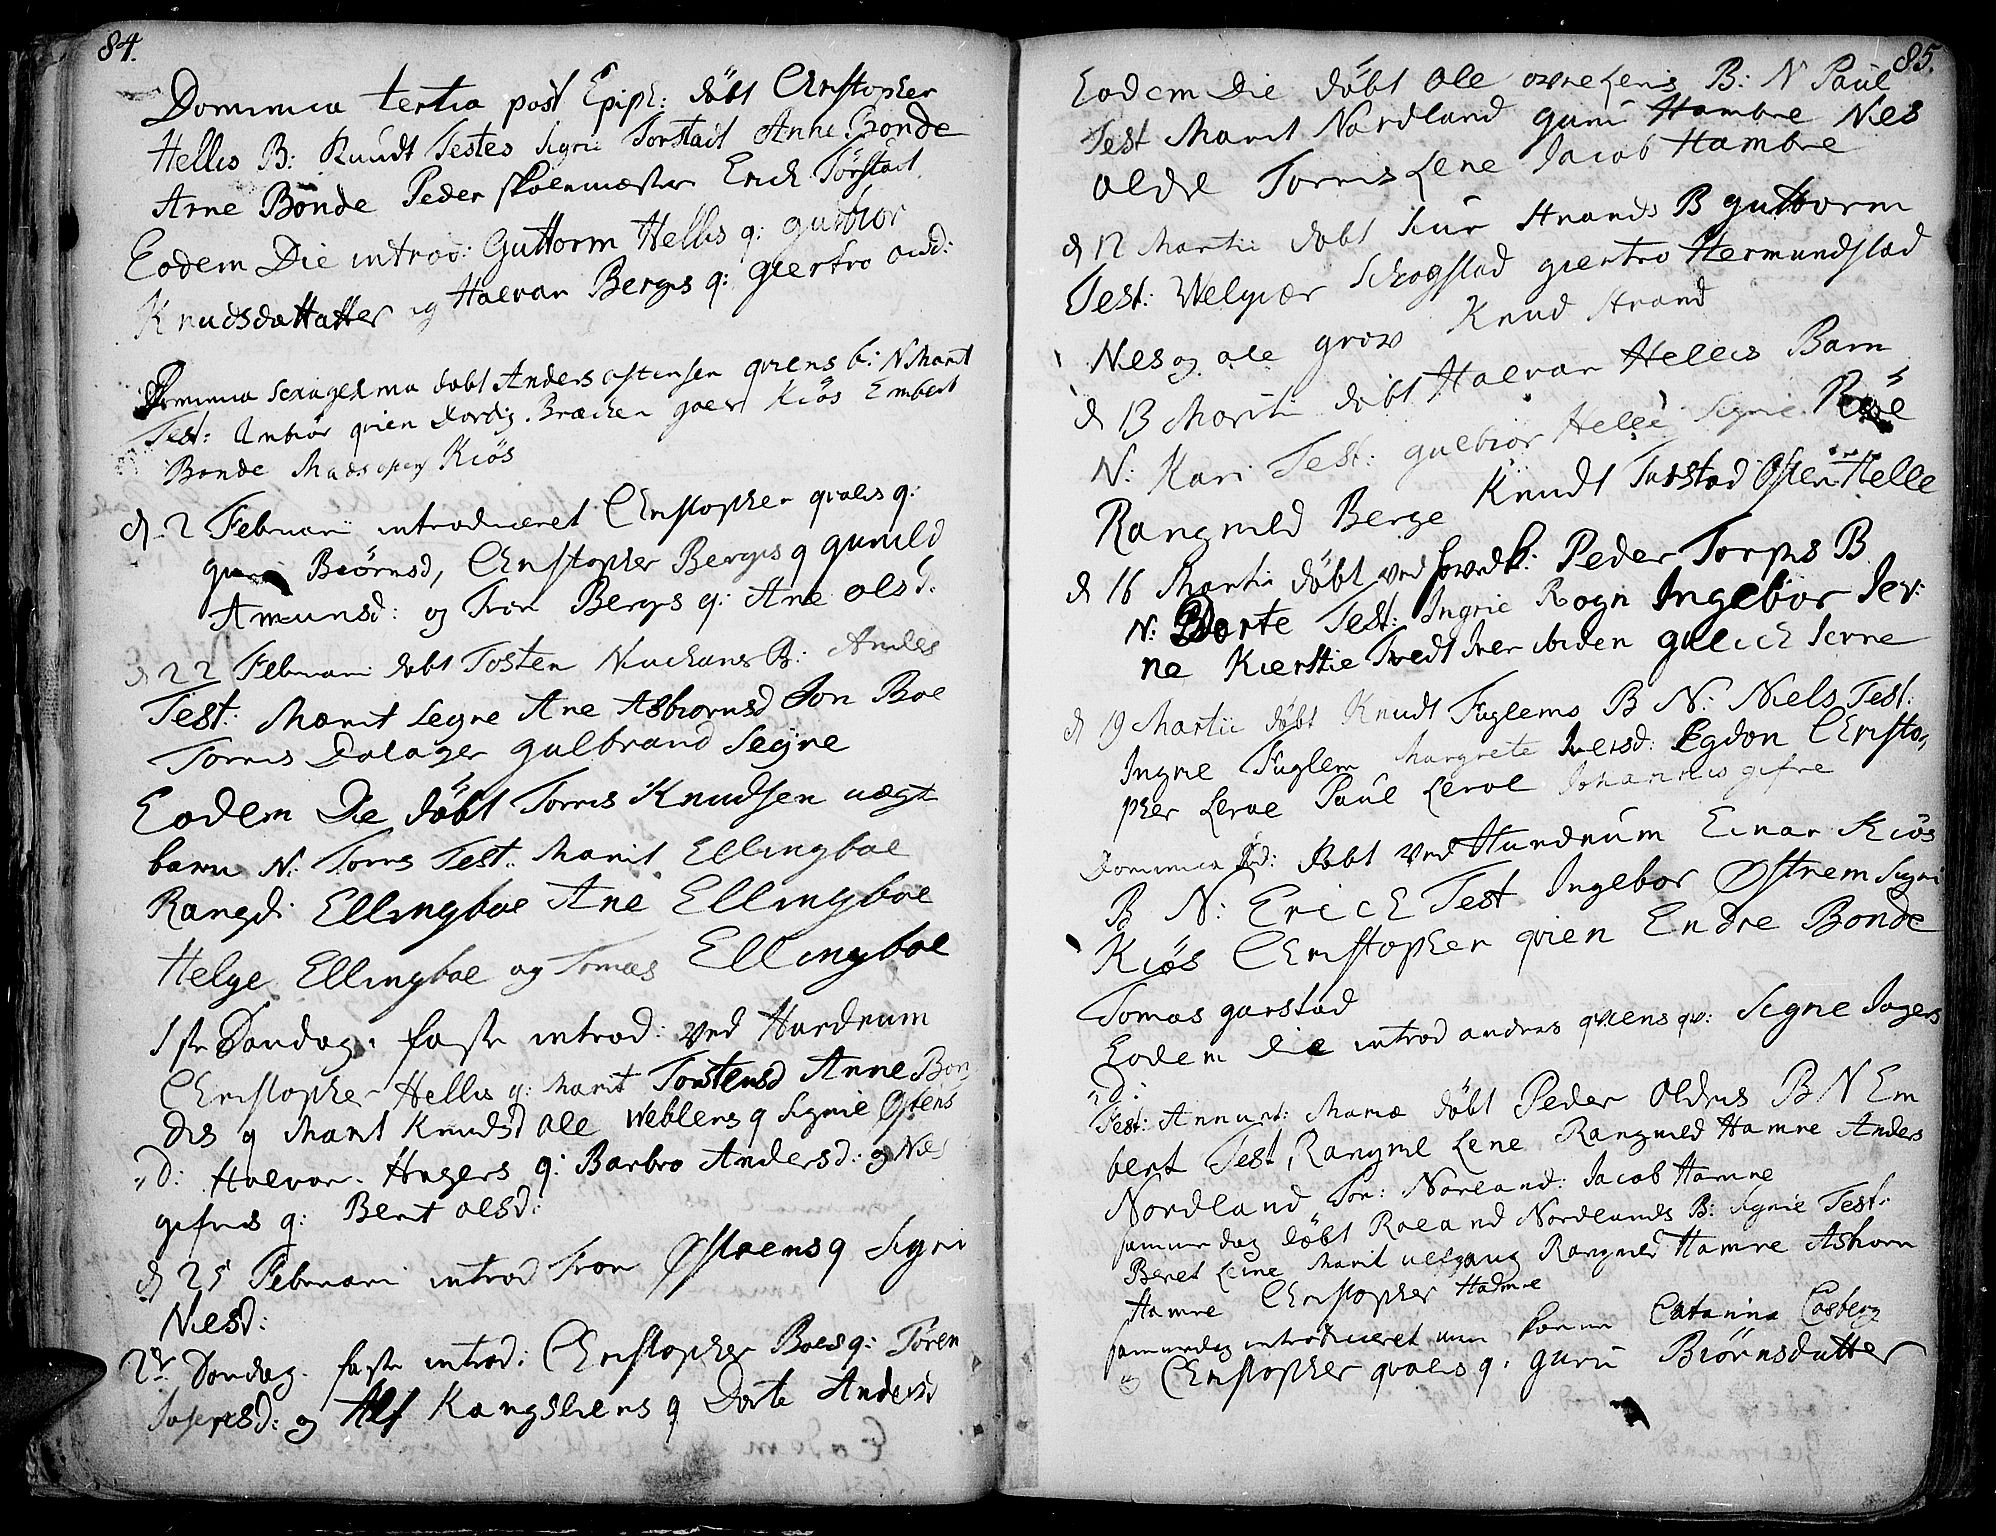 84.
Dominica tertia post Epiph: döbt Christopher
Hellis B: Knudt Testes Sigrii Torstait Anne Bonde
Arne Bonde Peder skolemester Erich Törstad.
Eodem Die introd: Guttorm Hellis q: gulbiör
Knudsdattatter og Haevar Bergs q: giertro aud:
Dominica sexagesima döbt Anders ostensen qviens b: N Marit
Test: Anbiör qvien Kiös Embert
Bonde Mads Kiös
d. 2 Februarii introduceret Christopher qvales q:
guri Biörnsd, Christopher Bergs q gunild
Amunsd: og Tron Bergs q: Ane olsd.
d 22 Februari döbt Tosten B: Andes
Test: Marit Segne Ane Asbiornsd Jon Boe
Torris Dalager gulbrand Segne
Eodem Die döbt Torris Knudsen uægt
barn N: Torris Test: Marit Ellingboe
Rangdi Ellingboe Ane Ellingboe
Helge Ellingboe og Tomas Ellingboe
1ste Søndag. faste introd: ved Hurdrum
Christopher Hellis q: Marit Torstensd Anne Bon
des q Marit Knudsd ole Weblens q Signie Ostens
"D: Halvor Hugers q: Barbro Andersd: og Niels
gifris q: Berit olsd:
d 25 Februari introd Tron Østrens q Sigri
Nielsd:
2de Søndag. faste introd: Christopher Boes q: Toren
Josepsd: og Alf Kangsliens q Dorte Andersd
85.
Eodem Die döbt Ole ovrelenis B: N Paul
Test Marit Nordland guri Hambre Nes
oldre Torris Lene Jacob Hambre
d 12 Martii döbt Siur Strands B guttorm
Test: Welgiær Schogstad giertro Hermundstad
Nes og ole grov Knud Strand
d 13 Martii döbt Halvor Hellis Barn
N: Kari Test: gulbior Helle Signe
Rangnild Berge Knudt Torstad Østen Helle
d 16 Martii döbt ved hovedk: Peder Torpis B
N: Dorte Test: Ingrie Rogn Ingebior Jer:
ne Kierstie Tvedt Iver ibiden gulich Jerne
d 19 Martii döbt Knudt Fuglems B N: Niels Test:
Ingrie Fuglem Margrete Iversd: Egdon Christo„
pher Leroe Paul Leroe Johannis gifre
Dominica Jud: döbt ved Hurdrum Einar Kiös
B N: Erich Test Ingebor Østrem Sigri
Kiös Christopher qvien Endre Bonde
Tomas garstad
Eodem die introd andras qviens qv: Signe Jogers
"D:
Fest: Annunt: Mariæ döbt Peder Oldris B N Em
bert Test, Rangnil Lene Rangnild Hamre Anders
Nordland Tor: Norland: Jacob Hamre
samme dag döbt Roeand Nordlands B: Signie Test:
Beret Leine Marit ulfgaug Rangnild Hamre Asborn
Hamre Christopher Hadme
samme dag introduceret min konne Catarina Casberg
og Christopher qvales q: guri Biörnsdatter